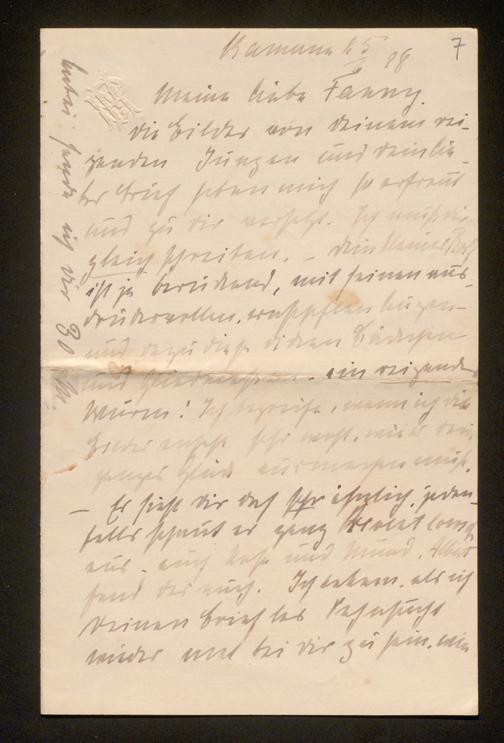 7
Ramann 15/6 98
Meine liebe Fanny.
Die Bilder von deinem rei-
zenden Jungen und dein lie-
ber Brief haben mich so erfreut
und zu dir versetzt. Ich muß dir
gleich schreiben. – Dein kleiner
ist ja berückend, mit seinen aus-
drucksvollen, ernsthaften Augen –
und dazu diese dicken Bäckchen
und ein reizender
Wurm! Ich begreife, wenn ich die
Bilder ansehe sehr wohl, wie er dein
ganzes Glück ausmachen muß.
– Er sieht dir doch sehr ähnlich, jeden-
falls schaut er ganz
aus, auch Nase und Mund. Albert
fand das auch. Ich bekam, als ich
Deinen Brief las Sehnsucht
wieder mal bei dir zu sein, wie
Anbei sende ich dir 30 M.